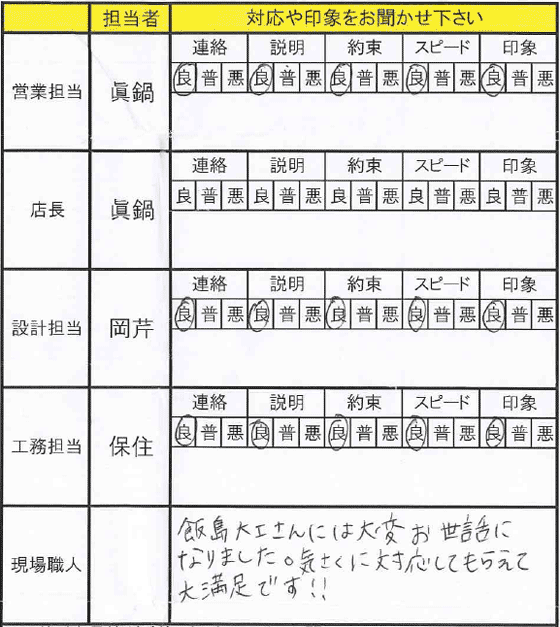 担当者 対応や印象をお聞かせ下さい
連絡 説明 約束 スピード 印象
営業担当 眞鍋 良 普 悪 良 普 悪 良 普 悪 良 普 悪 良 普 悪
連絡 説明 約束 スピード 印象
店長 眞鍋 良 普 悪 良 普 悪 良 普 悪 良 普 悪 良 普 悪
連絡 説明 約束 スピード 印象
設計担当 岡芹 良 普 悪 良 普 悪 良 普 悪 良 普 悪 良 普 悪
連絡 説明 約束 スピード 印象
工務担当 保住 良 普 悪 良 普 悪 良 普 悪 良 普 悪 良 普 悪
現場職人
飯島大工さんには大変お世話に
なりました。気さくに対応してもらえて
大満足です!!